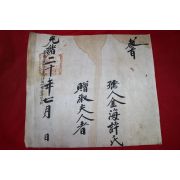 敎旨
孺人金海許氏
贈淑夫人者
光緖二十年七月　日